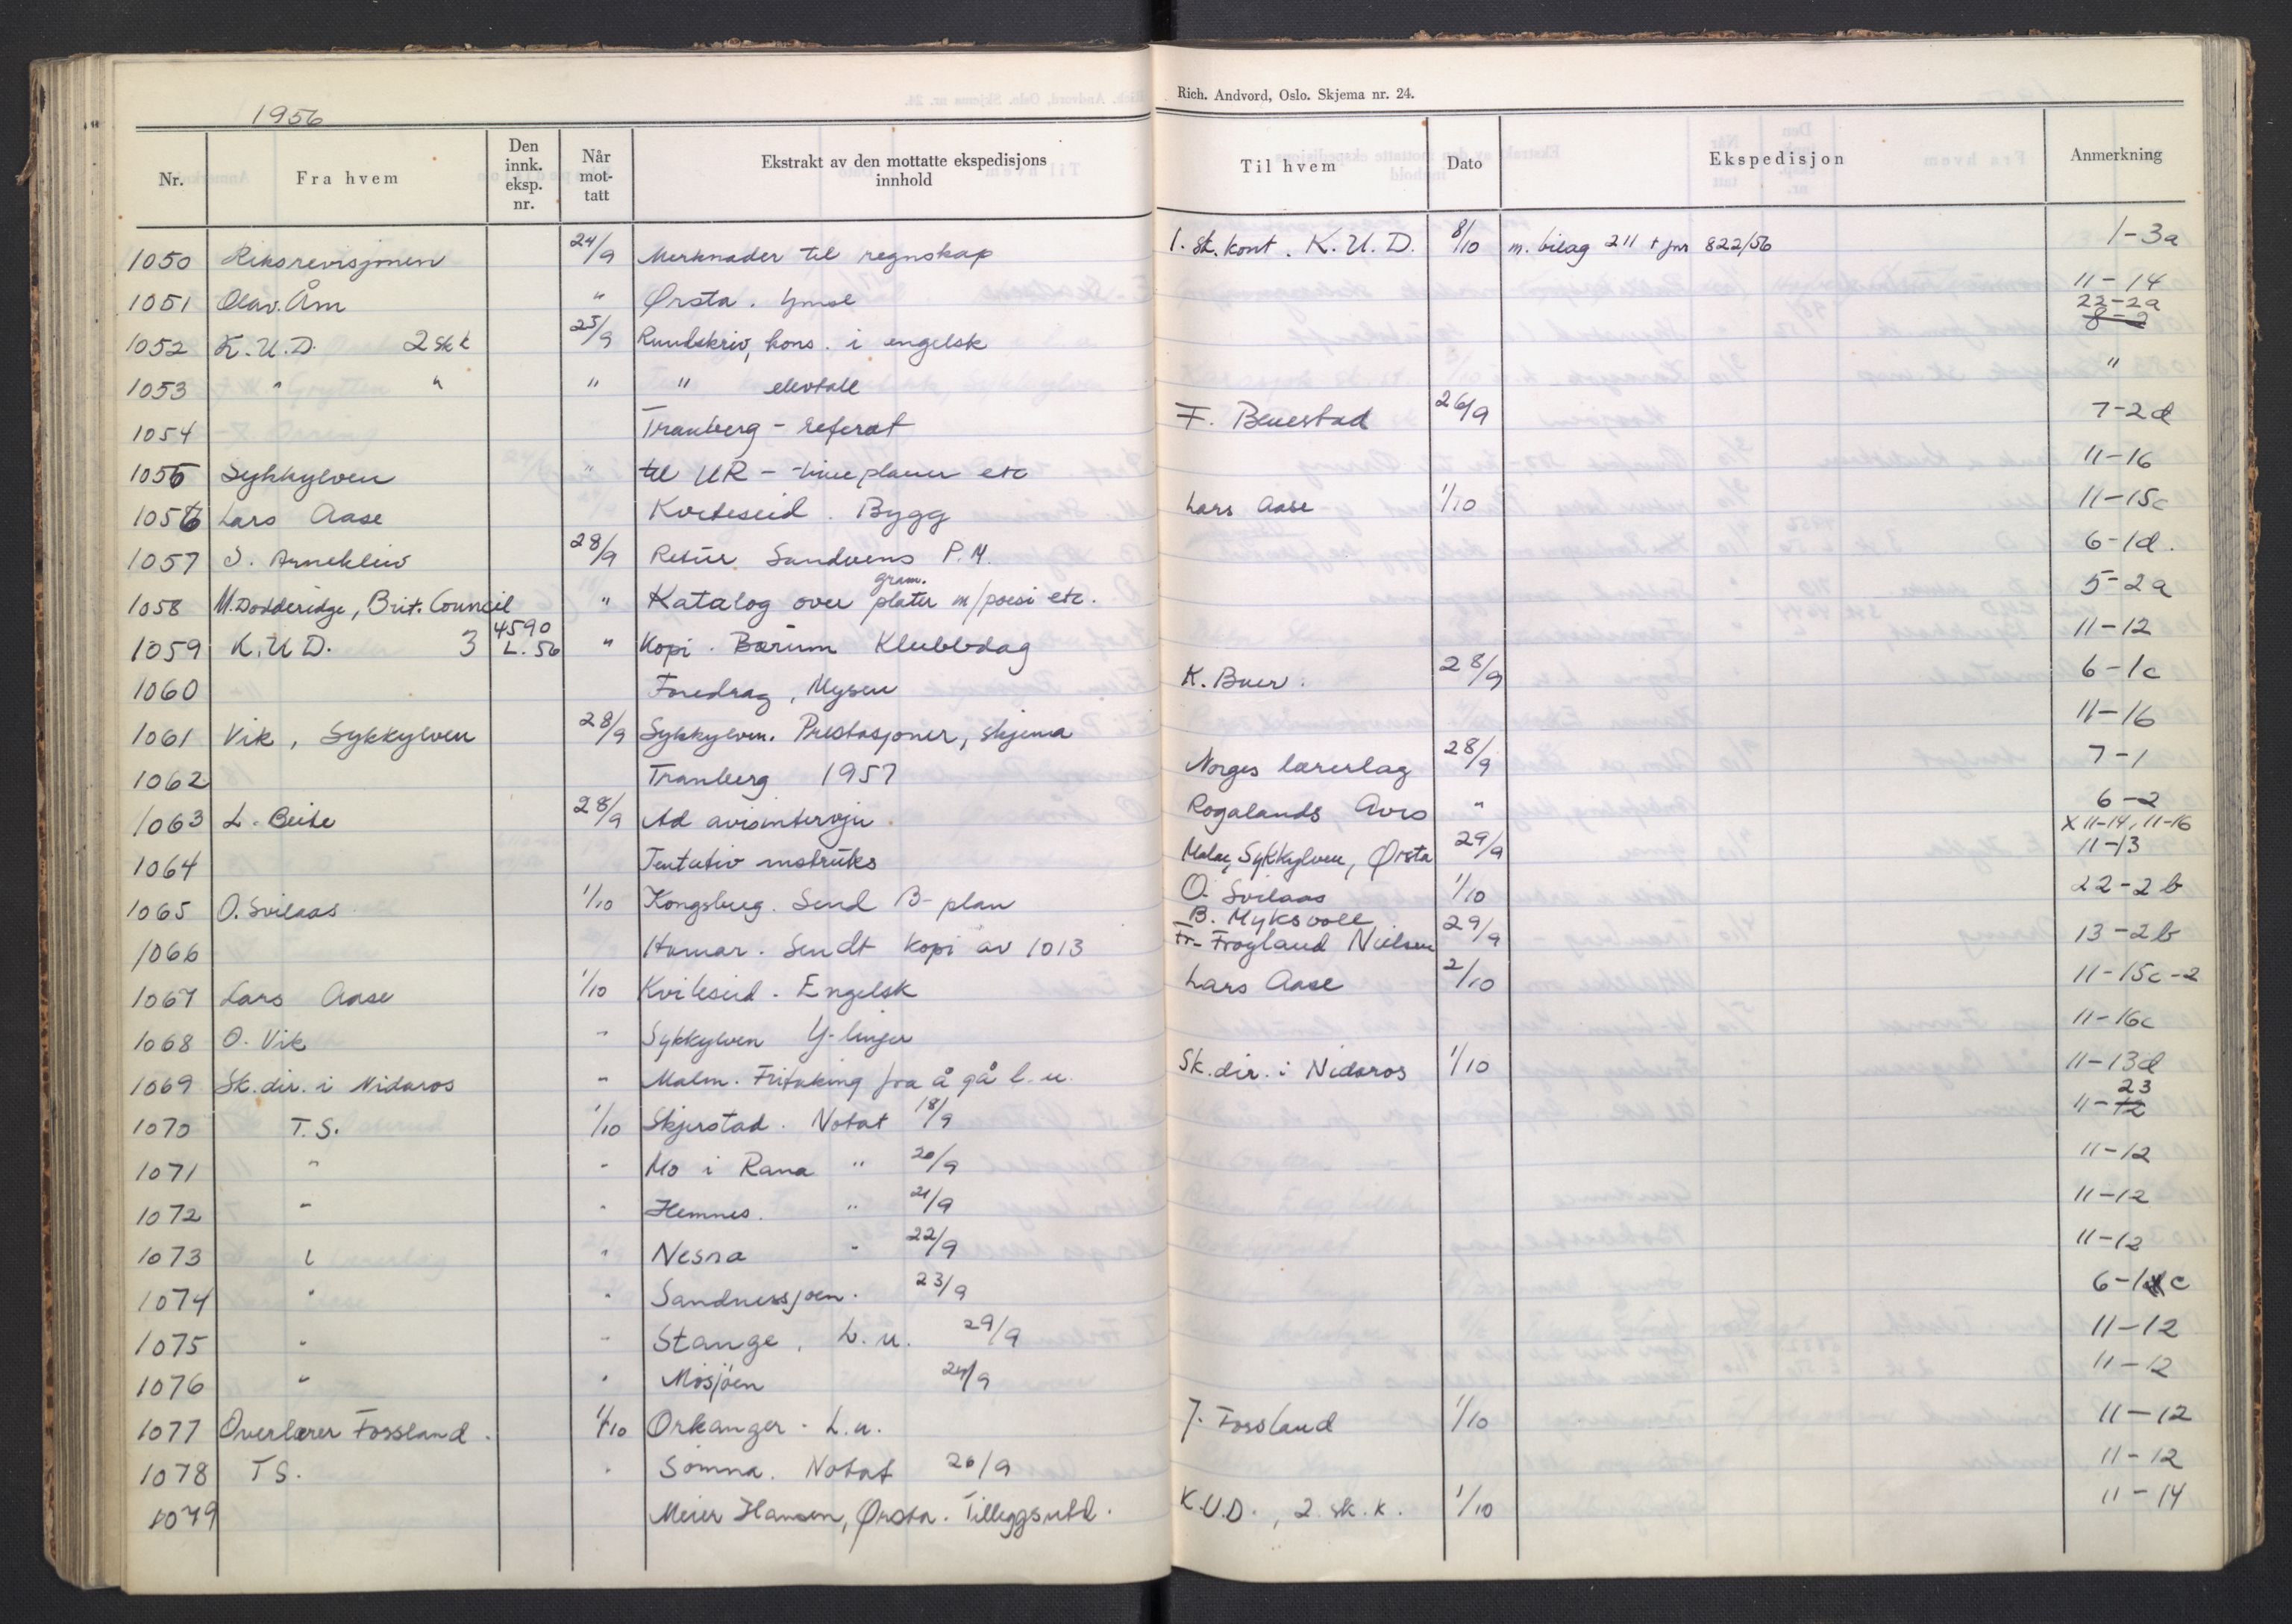 Rich. Andvord, Oslo. Skjema nr. 24.
1956
Nr. Fra hvem Den innk. eksp. nr. Når mot- tatt Ekstrakt av den mottatte ekspedisjons innhold Til hvem Dato Ekspedisjon Anmerkning
1050 Riksrevisjonen 24/9 Merknader til regnskap 1. sk. kont. K.U.D. 8/10 m. bilag 211 + jnr 822/56 1-3a
1051 Olav Åm " Ørsta. Ymse 11-14
1052 K.U.D. 2 sk k 25/9 Rundskriv, kons. i engelsk 22-2a 8-2
1053 " " " " elevtall "
1054 Tranberg - referat F. Beuestad 26/9 7-2d
1055 Sykkylven " til UR - timeplaner etc 11-16
1056 Lars Aase Kviteseid. Bygg Lars Aase 1/10 11-15c
1057 S. Arnekleiv 28/9 Retur Sandvens P.M. 6-1d.
1058 M. Dodderidge, Brit. Council " Katalog over gram. plater m/poesi etc. 5-2a
1059 K.U.D. 3 4590 L. 56 " Kopi. Bærum Klubbdag 11-12
1060 Foredrag, Mysen K. Buer. 28/9 6-1c
1061 Vik, Sykkylven 28/9 Sykkylven. Prestasjoner, skjema 11-16
1062 Tranberg 1957 Norges lærerlag 28/9 7-1
1063 L. Beite 28/9 Ad avisintervju. Rogalands Avis " 6-2
1064 Tentativ instruks Malm, Sykkylven, Ørsta 29/9 X 11-14, 11-16 11-13
1065 O. Svilaas 1/10 Kongsberg. Send B-plan O. Svilaas 1/10 22-2b
1066 Hamar. Sendt kopi av 1013 B. Myksvoll Fr. Frogland Nielsen 29/9 13-2b
1067 Lars Aase 1/10 Kviteseid. Engelsk Lars Aase 2/10 11-15c-2
1068 O. Vik " Sykkylven Y-linjer 11-16c
1069 Sk.dir. i Nidaros " Malm. Fritaking fra å gå l.u. Sk.dir. i Nidaros 1/10 11-13d
1070 T.S. 1/10 Skjerstad. Notat 18/9 11-12 23
1071 " " Mo i Rana " 20/9 11-12
1072 " " Hemnes. " 21/9 11-12
1073 " " Nesna " 22/9 11-12
1074 " " Sandnessjøen. 23/9 6-1c
1075 " " Stange, L.u. 29/9 11-12
1076 " " Mosjøen 24/9 11-12
1077 Overlærer Forsland. 1/10 Orkanger. L.u. J. Forsland 1/10 11-12
1078 T S. " Sømna. Notat 26/9 11-12
1079 Meier Hansen, Ørsta. Tilleggsutd. K.U.D., 2. sk. k. 1/10 11-14